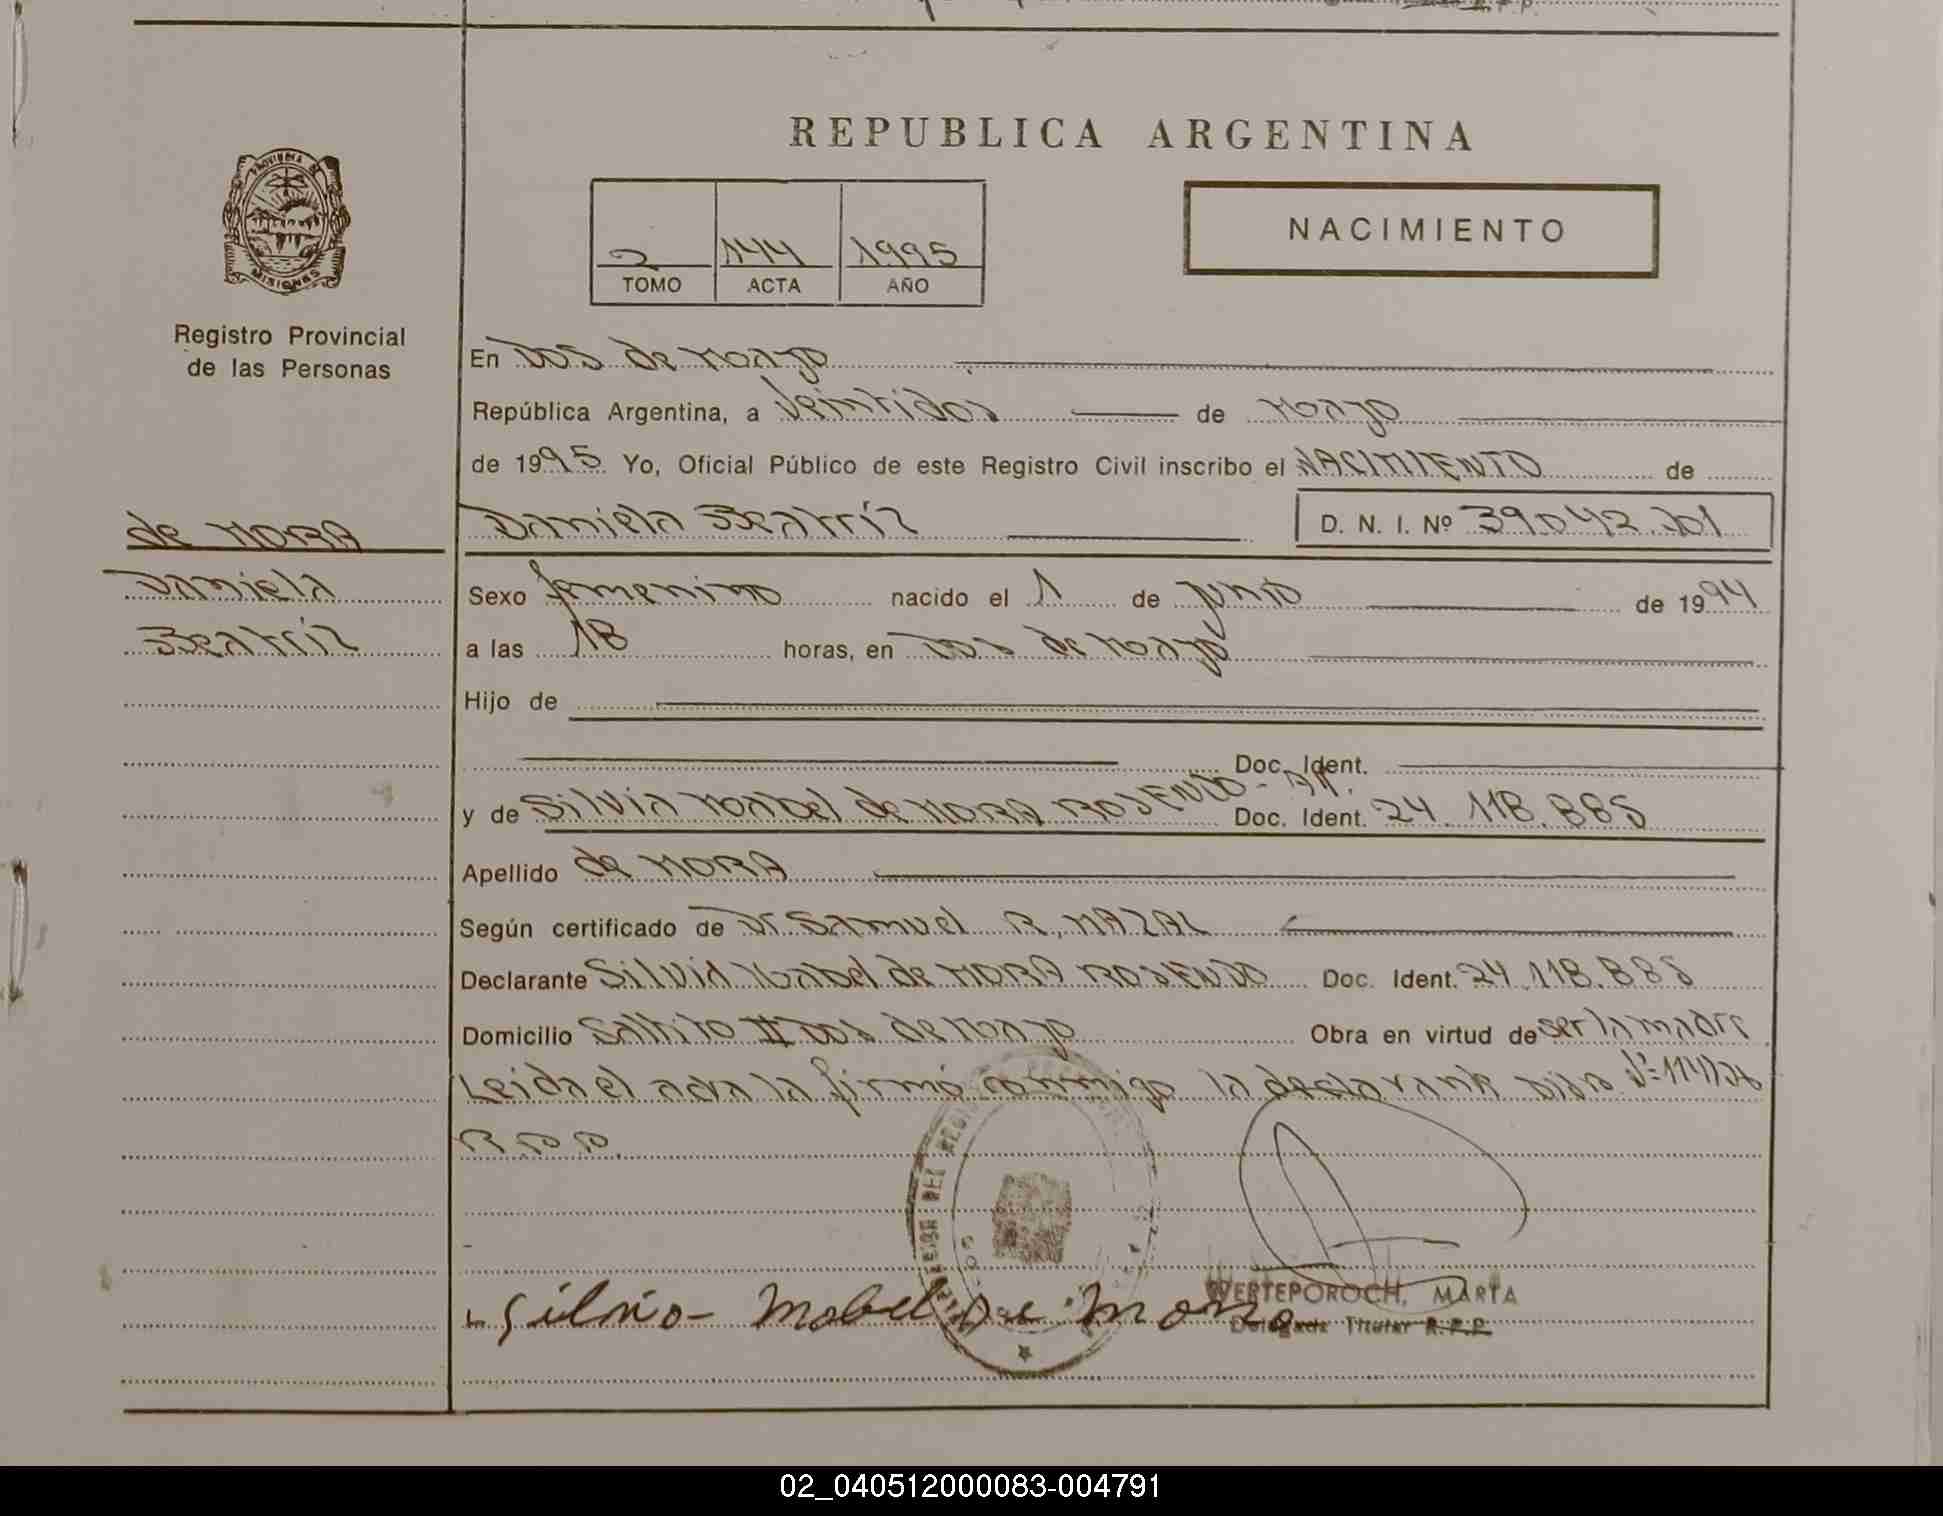 REPUBLICA ARGENTINA
PROVINCIA DE
MISIONES
NACIMIENTO
2 144 1995
TOMO ACTA AÑO
Registro Provincial
de las Personas
En Dos de Mayo
República Argentina, a Veintidos de Mayo
de 1995. Yo, Oficial Público de este Registro Civil inscribo el NACIMIENTO de
de MORA
Daniela Beatríz D. N. I. Nº 39.042.701
Daniela
Sexo femenino nacido el 1 de junio de 1994
Beatríz
a las 18 horas, en Dos de Mayo
Hijo de
Doc. Ident.
y de Silvia Mabel de MORA ROSENDO - Doc. Ident. 24.118.885
Apellido de MORA
Según certificado de Dr Samuel R. MAZAL
Declarante Silvia Mabel de MORA ROSENDO Doc. Ident. 24.118.885
Domicilio Saltito II Dos de Mayo Obra en virtud de ser la madre
Leida el acta la firmó conmigo la declarante
R.P.P.
Silvia Mabel De Mora
WERTEPOROCH, MARTA
Delegada Titular R.P.P.
02_040512000083-004791